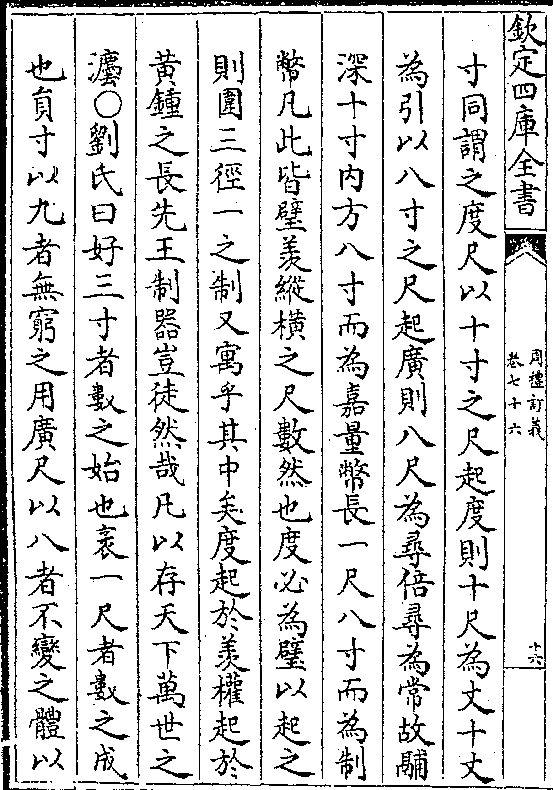 欽定四庫全書
周禮訂義
卷七十六
十六
寸同謂之度尺以十寸之尺起度則十尺為丈十丈
為引以八寸之尺起廣則八尺為尋倍尋為常故鬴
深十寸内方八寸而為嘉量幣長一尺八寸而為制
幣凡此皆璧羨縱橫之尺數然也度必為璧以起之
則圍三徑一之制又寓乎其中矣度起於羨權起於
黃鍾之長先王制器豈徒然哉凡以存天下萬世之
灋○劉氏曰好三寸者數之始也袤一尺者數之成
也負寸以九者無窮之用廣尺以八者不變之體以